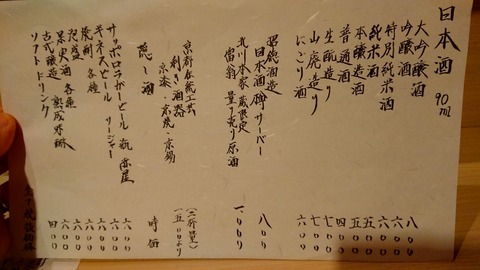 日本酒 90ml
大吟醸酒 八〇〇
吟醸酒 六〇〇
特別純米酒 六〇〇
純米酒 五〇〇
本醸造酒 五〇〇
普通酒 四〇〇
生酛造り 七〇〇
山廃造り 七〇〇
にごり酒 六〇〇
招徳酒造
日本酒樽サーバー 八〇〇
北川本家 蔵限定
富翁 量り売り原酒 一、〇〇〇
京都伝統工芸
利き酒器 (二酌量)
京漆・京焼・京錫 一五〇〇より
隠し酒 時価
サッポロラガービール 瓶 赤星 六〇〇
ギネスビール 六〇〇
焼酎 各種 六〇〇
泡盛 六〇〇
果実酒 各種 六〇〇
古式醸造
ソフトドリンク 四〇〇